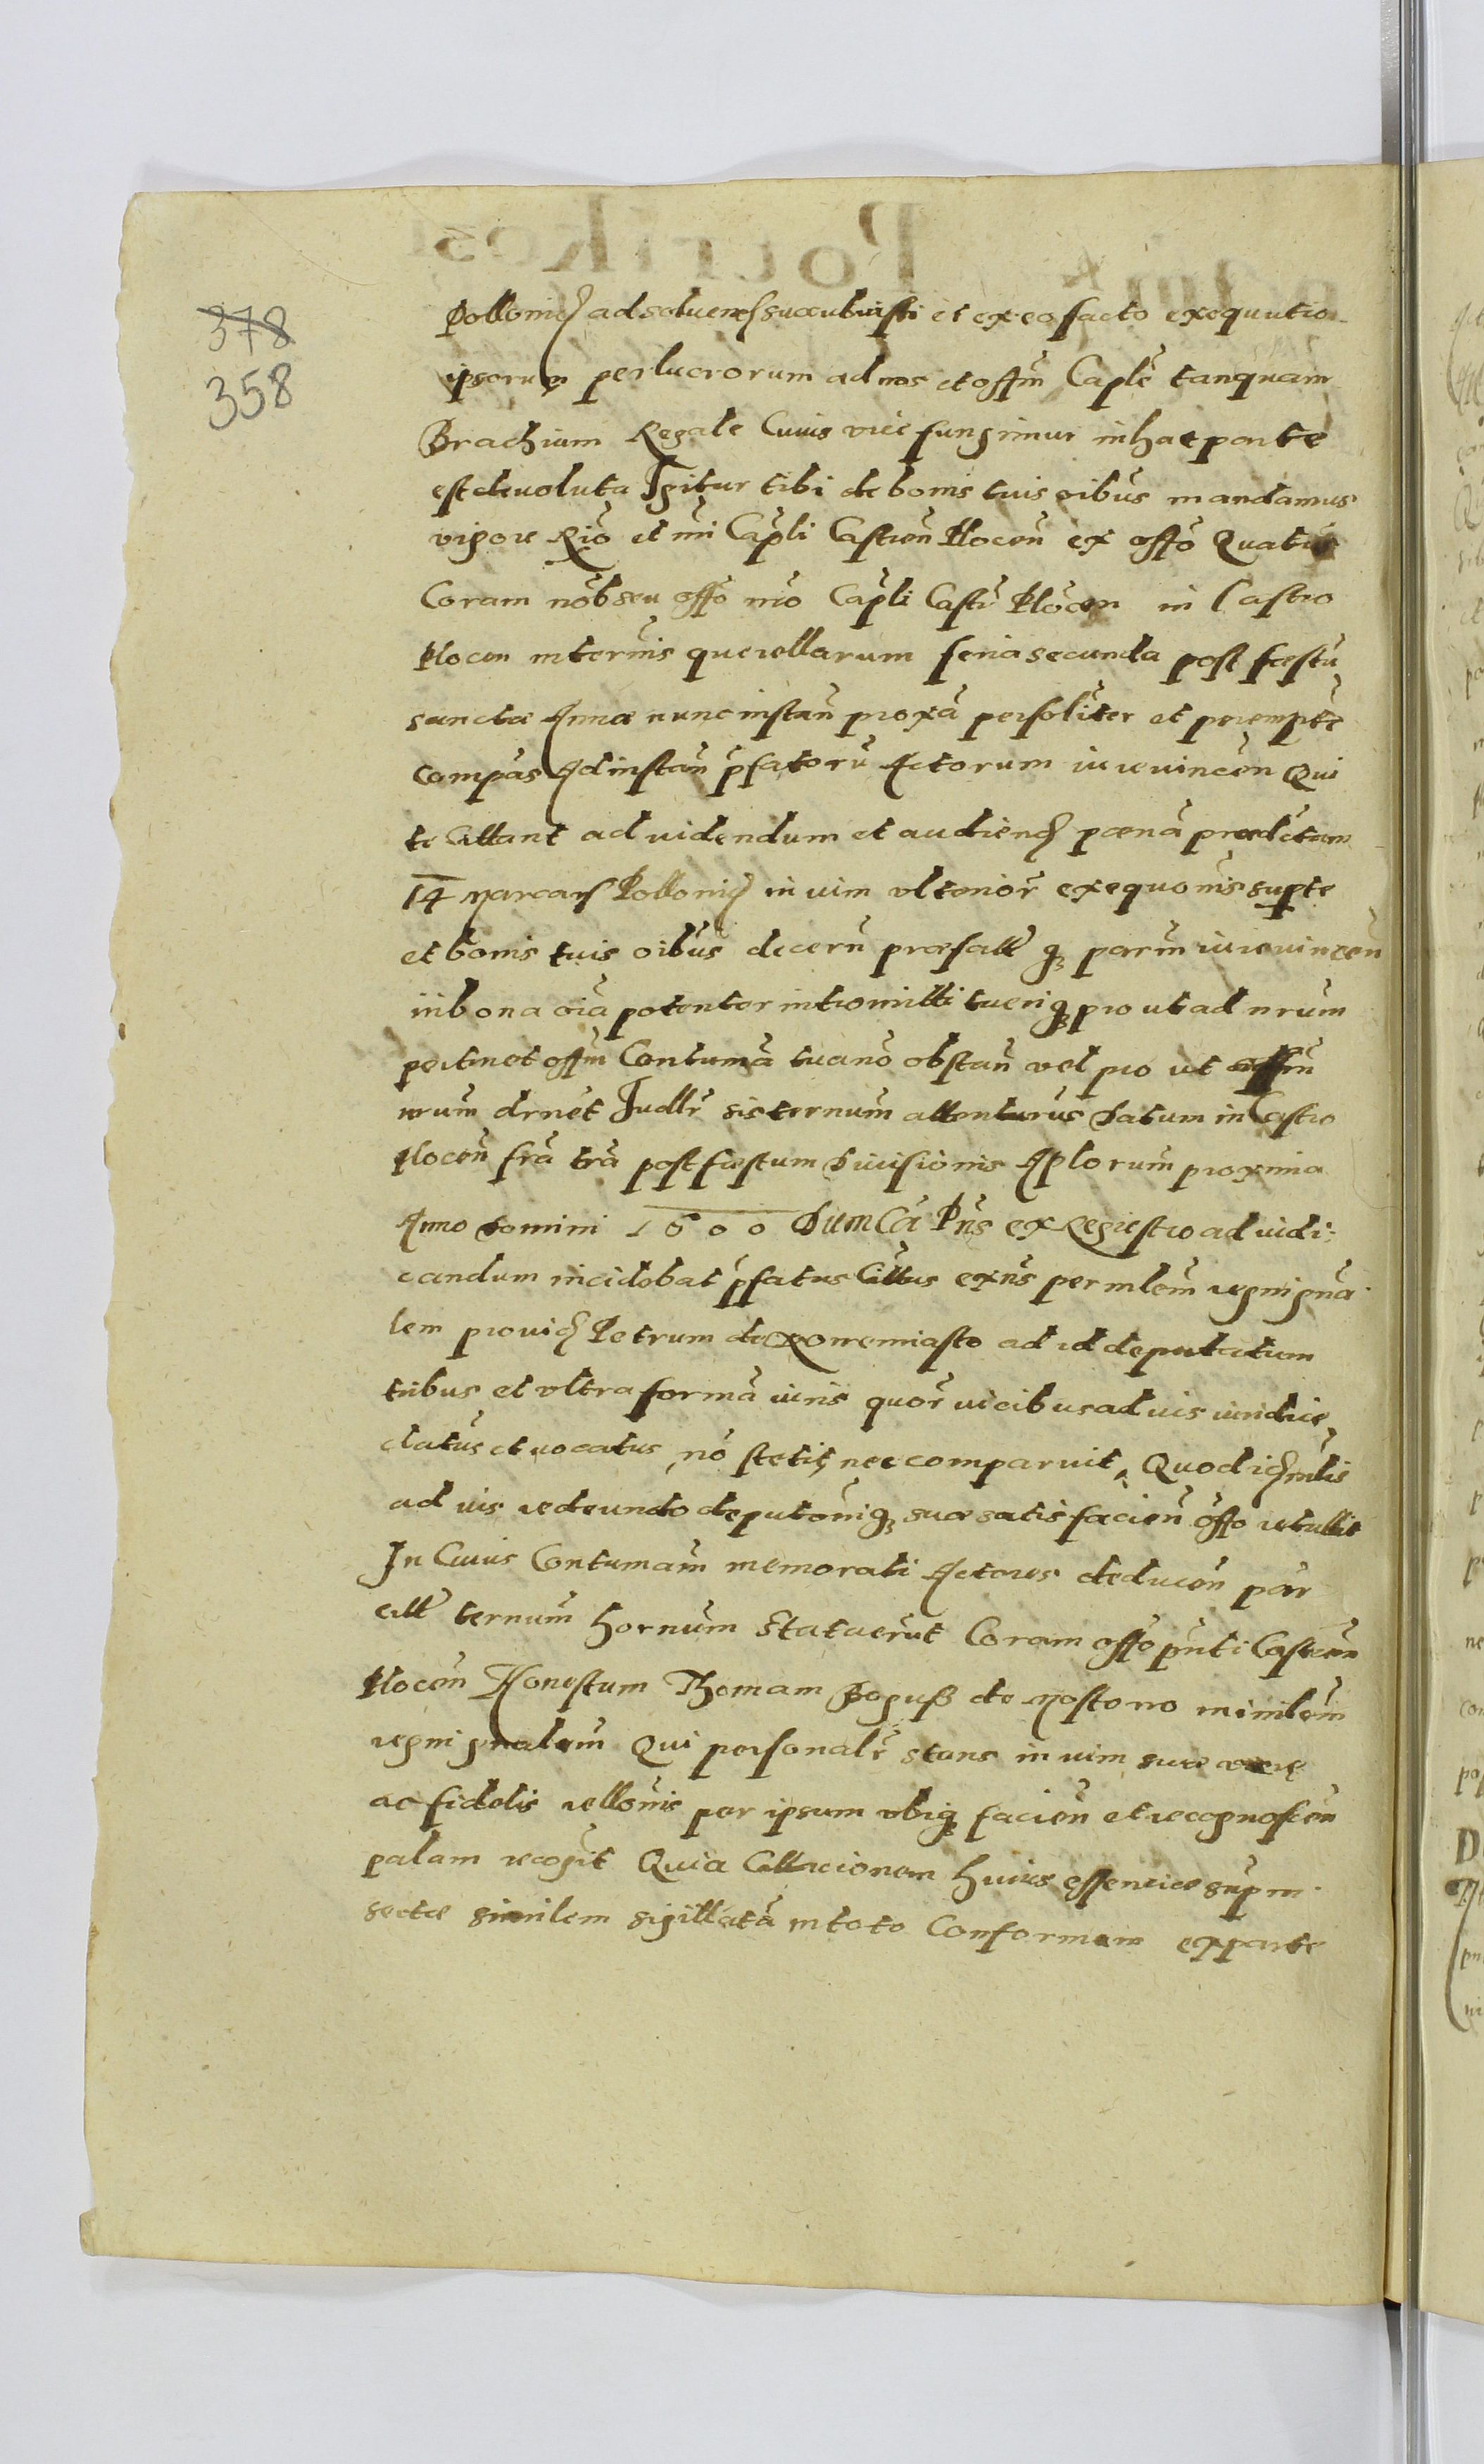 378
358
Pollonicl ad solvend succubuisti et ex eo facto exequutio
ipsorum perlucrorum ad nos et offm Caple tanquam
Brachium Regale Cuius vice fungimur in hac parte
est devoluta Igitur tibi de bonis tuis oibus mandamus
vigore Rio et nri Capli Castren Plocen ex offo Quatus
Coram nob seu offo nro Capli Castr Plocen in Castro
Plocen in termis querellarum feria secunda post festu
sanctæ Annæ nunc instan proxa personliter et perempte
compas Ad instan pfatoru Actorum iurevincen Qui
te Cittant ad videndum et audiend pæna prædictam
14 marcars Pollonicl in vim ulterior exequonis supte
et bonis tuis oibus decern præfatte q parm iurevincen
in bona oia potenter intromitti tueriq pro ut ad nrum
pertinet offm Contuma tua no obstan vel pro ut offm
nrum drnet Judlr sis ternum attenturus Datum in Castro
Plocen fra tra post festum Divisionis Aplorum proxima
Anno Domini 1600 Dum Ca Pns ex Regiestro ad iudi
candum incidebat pfatus Cittus exns per mlem regni gna
lem provid Petrum de ad id deputatum
tribus et ultra forma iuris quor vicibus ad ius iuridice
clatus et vocatus no stetit nec comparuit Quod id mlis
ad ius redeundo deputoniq suæ satisfacien offo retullit
In Cuius Contumam memorati Actores deducen par
citt ternum hornum Statuerut Coram offo pnti Castren
Plocen Honestum Thomam de minilem
regni gnalem Qui personalr stans in vim suæ veræ
ac fidelis rellonis per ipsum ubiq facien et recognoscen
palam recogit Quia Cittacionem huius essentiæ sup in
sertæ similem sigillata in toto Conformem ex parte